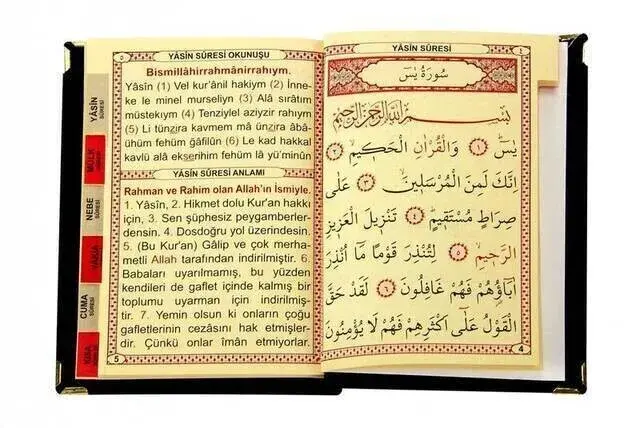 YÂSİN SÛRESİ
٤
سُورَةُ يٰسٓ
بِسْمِ اللّٰهِ الرَّحْمٰنِ الرَّحِيمِ
يٰسٓ ﴿١﴾ وَالْقُرْاٰنِ الْحَكِيمِ ﴿٢﴾
اِنَّكَ لَمِنَ الْمُرْسَلِينَ ﴿٣﴾ عَلٰى
صِرَاطٍ مُسْتَقِيمٍ ﴿٤﴾ تَنْزِيلَ الْعَزِيزِ
الرَّحِيمِ ﴿٥﴾ لِتُنْذِرَ قَوْمًا مَٓا اُنْذِرَ
اٰبَٓاؤُ۬هُمْ فَهُمْ غَافِلُونَ ﴿٦﴾ لَقَدْ حَقَّ
الْقَوْلُ عَلٰٓى اَكْثَرِهِمْ فَهُمْ لَا يُؤْمِنُونَ
4
٥
YÂSİN SÛRESİ OKUNUŞU
Bismillâhirrahmânirrahıym.
Yâsîn (1) Vel kur'ânil hakiym (2) İnne-
ke le minel murseliyn (3) Alâ sırâtım
müstekıym (4) Tenziylel aziyzir rahıym
(5) Li tünzira kavmem mâ ünzira âbâ-
ühüm fehüm ğâfilûn (6) Le kad hakkal
kavlü alâ ekserihim fehüm lâ yü'minûn
YÂSİN SÛRESİ ANLAMI
Rahman ve Rahim olan Allah'ın İsmiyle.
1. Yâsîn, 2. Hikmet dolu Kur'an hakkı
için, 3. Sen şüphesiz peygamberler-
densin. 4. Dosdoğru yol üzerindesin.
5. (Bu Kur'an) Gâlip ve çok merha-
metli Allah tarafından indirilmiştir. 6.
Babaları uyarılmamış, bu yüzden
kendileri de gaflet içinde kalmış bir
toplumu uyarman için indirilmiş-
tir. 7. Yemin olsun ki onların çoğu
gafletlerinin cezâsını hak etmişler-
dir. Çünkü onlar îmân etmiyorlar.
5
YÂSİN
SÛRESİ
MÜLK
NEBE
SÛRESİ
VAKIA
CUMA
SÛRESİ